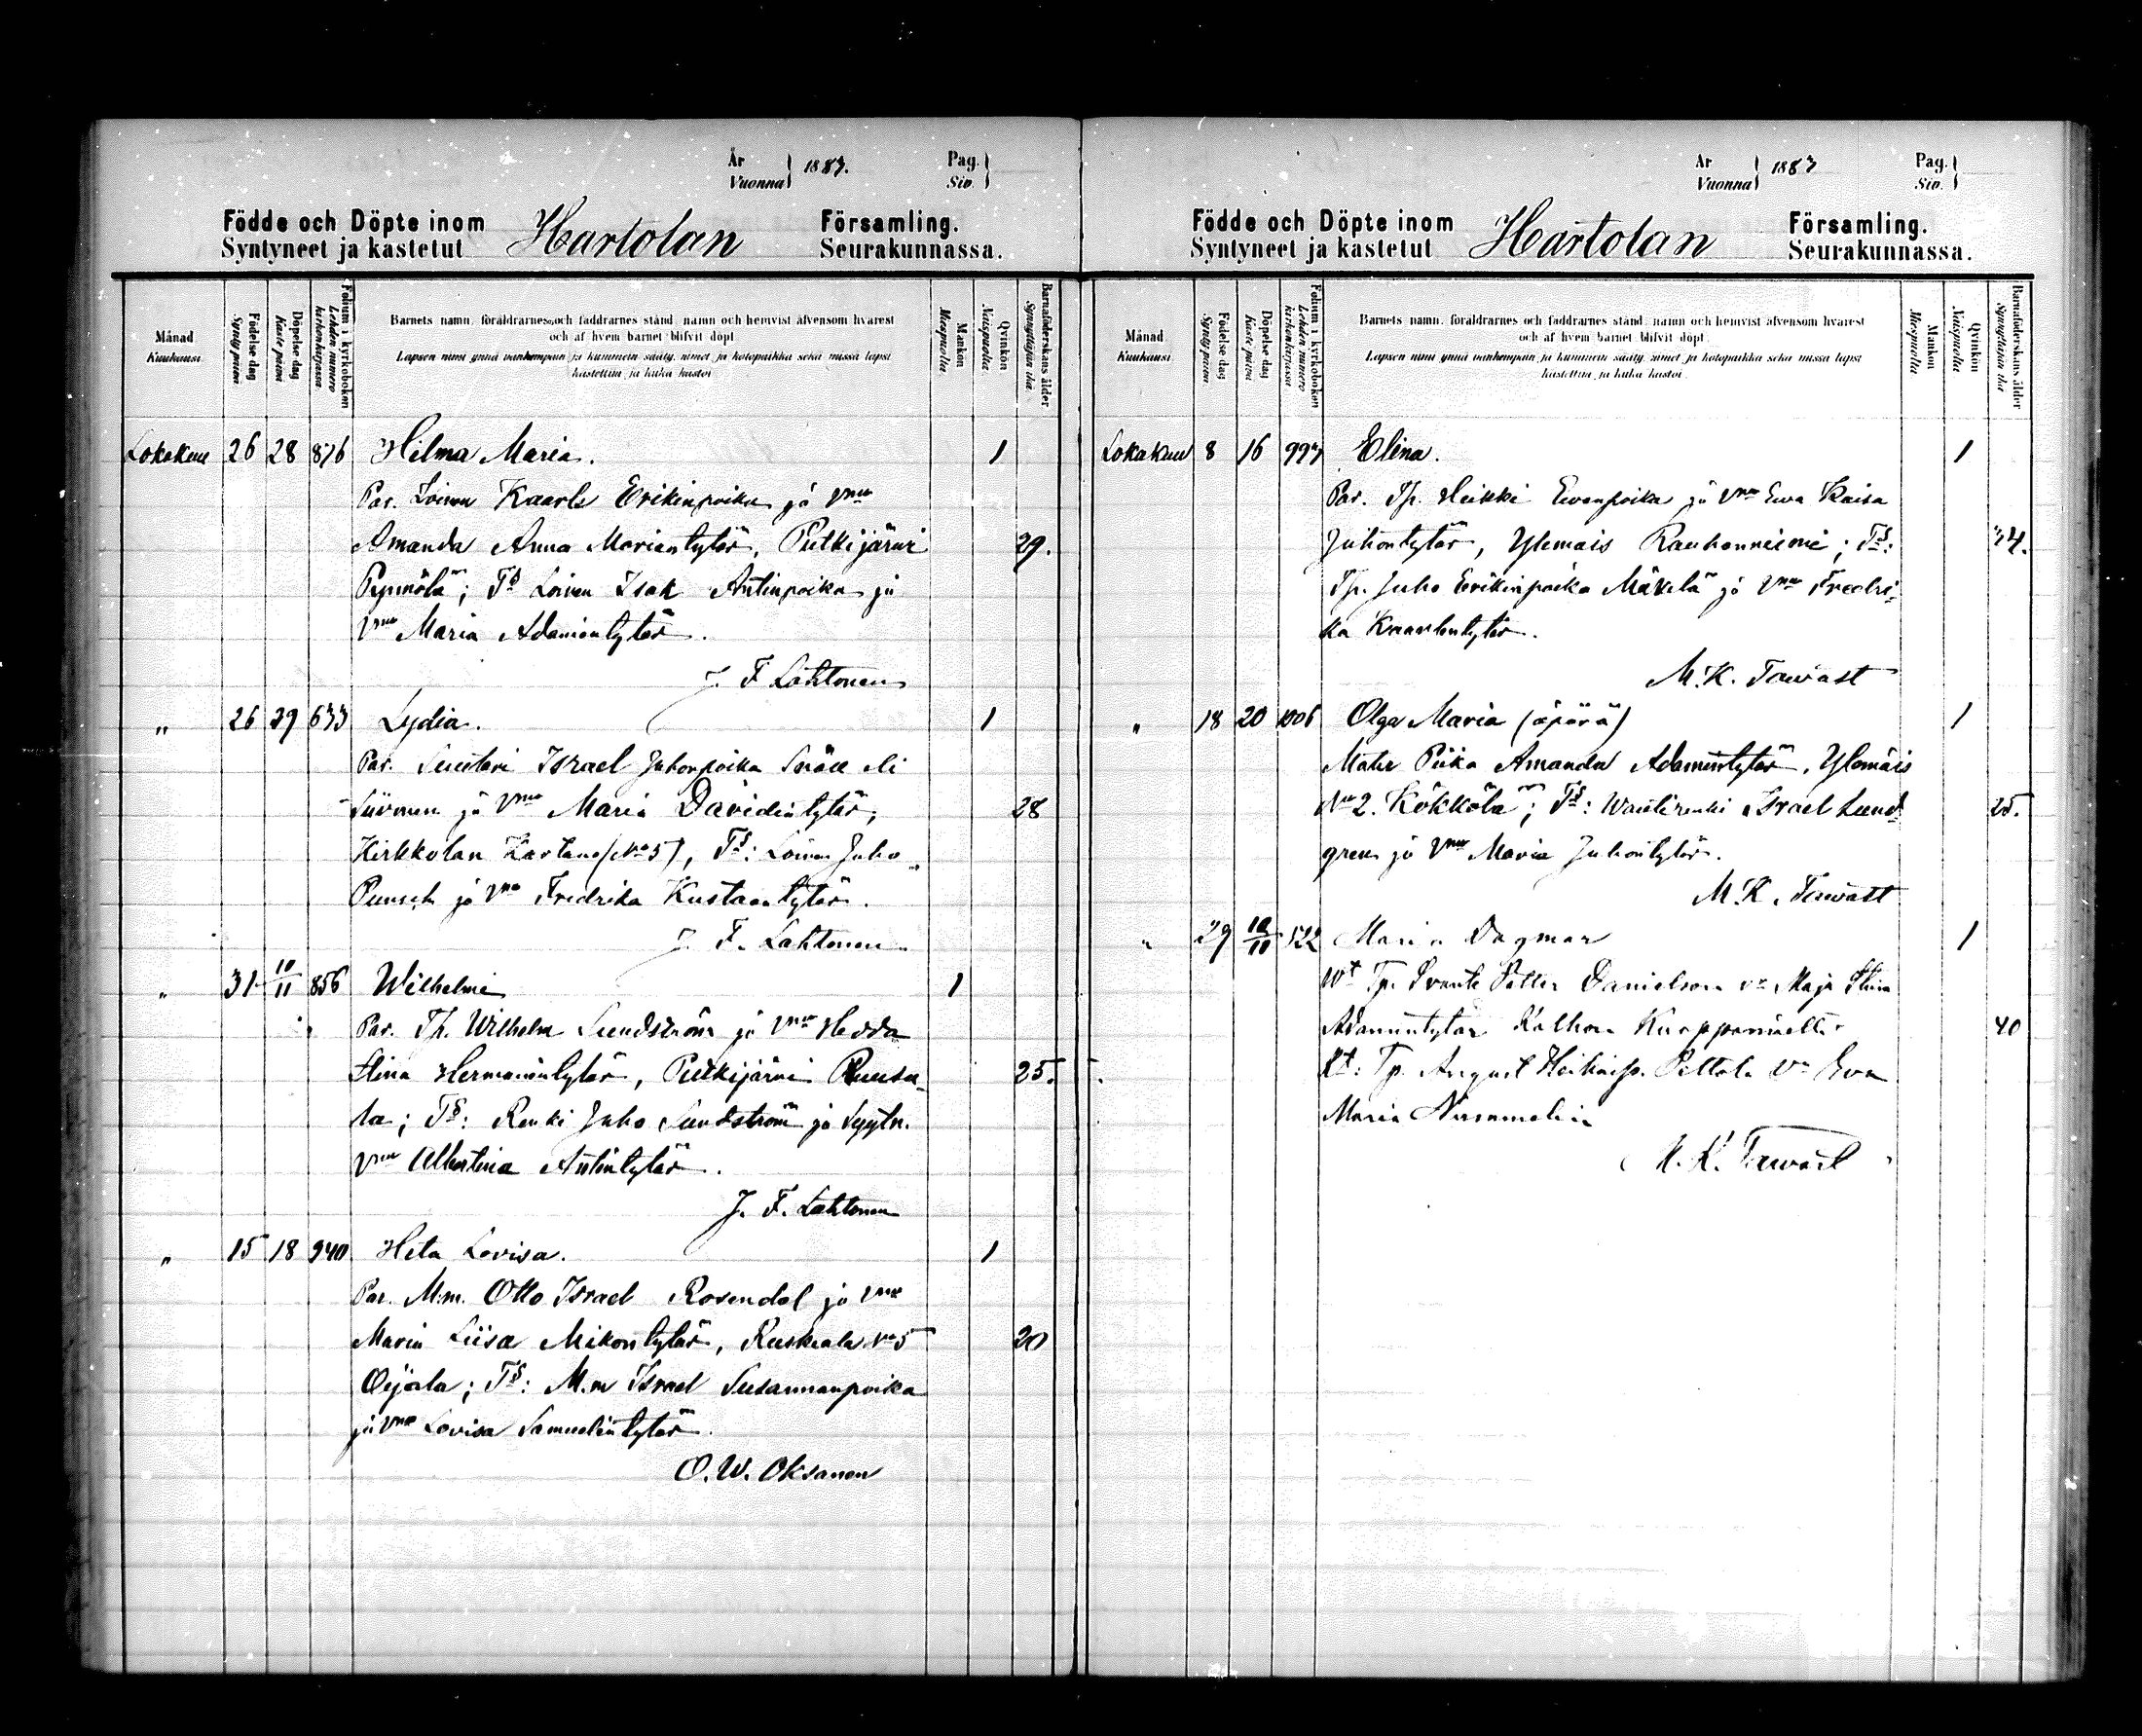 År
Vuonna 1883.
Pag.
Siv.
Födde och Döpte inom Hartolan Församling.
Syntyneet ja kastetut Seurakunnassa.
Månad
Kuukausi
Födelse dag
Synty päivä
Döpelse dag
Kaste päivä
Folium i kyrkoboken
Lehden numero kirkonkirjassa
Barnets namn, föräldrarnes och faddrarnes stånd, namn och hemvist äfvensom hvarest
och af hvem barnet blifvit döpt
Lapsen nimi ynnä vanhempain ja kummein sääty, nimet ja kotopaikka sekä missä lapsi
kastettiin ja kuka kastoi
Mankön
Miespuolia
Qvinkön
Naispuolia
Barnaföderskans ålder
Synnyttäjän ikä
Lokakuu 26 28 876 Hilma Maria. 1
Par. Loinen Kaarle Erikinpoika ja vmo
Amanda Anna Mariantytär, Putkijärvi 29.
Pynnölä; Ts Loinen Isak Antinpoika ja
Vmo Maria Adamintytär.
J. F. Lahtonen
" 26 29 633 Lydia. 1
Par. Suutari Israel Juhonpoika eli
ja Vmo Maria Davidintytär, 28
Kirkkolan Kartano (No 5), Ts: Loinen Juho
Punsch ja Vmo Fredrika Kustaantytär.
J. F. Lahtonen
" 31 10/11 856 Wilhelmi 1
Par. Tp. Wilhelm Sundström ja Vmo Hedda
Stina Hermanintytär, Putkijärvi Ruusu- 25.
la; Ts: Renki Juho Sundström ja
vmo Albertina Antintytär.
J. F. Lahtonen
" 15 18 940 Heta Lovisa. 1
Par. M:m. Otto Israel Rosendal ja vmo
Maria Liisa Mikontytär, Ruskeala No 5 20
Oijala; Ts: M.m Israel Susannanpoika
ja vmo Lovisa Samuelintytär.
O. W. Oksanen
År
Vuonna 1883
Pag.
Siv.
Födde och Döpte inom Hartolan Församling.
Syntyneet ja kastetut Seurakunnassa.
Månad
Kuukausi
Födelse dag
Synty päivä
Döpelse dag
Kaste päivä
Folium i kyrkoboken
Lehden numero kirkonkirjassa
Barnets namn, föräldrarnes och faddrarnes stånd, namn och hemvist äfvensom hvarest
och af hvem barnet blifvit döpt
Lapsen nimi ynnä vanhempain ja kummein sääty, nimet ja kotopaikka sekä missä lapsi
kastettiin ja kuka kastoi
Mankön
Miespuolia
Qvinkön
Naispuolia
Barnaföderskans ålder
Synnyttäjän ikä
Lokakuu 8 16 997 Elina. 1
Par. Tp. Heikki Ewanpoika ja Vmo Ewa Kaisa
Juhontytär, Ylemäis Rauhanniemi; Ts: 34.
Tp. Juho Erikinpoika Mäkelä ja Vmo Fredri-
ka Kaarlentytär.
M. K. Tawast
" 18 20 1006 Olga Maria (äpärä) 1
Mater Piika Amanda Adamintytär, Ylemäis
No 2. Kökkölä; Ts: Israel Lund- 25.
gren ja Vmo Maria Juhontytär.
M. K. Tawast
" 29 10/11 522 Maria Dagmar 1
Tp. Petter Danielson vo Maja Stina
Adamintytär Kalho 40
Tp. August Heikinp. Vo Eva
Maria Nummelin
M. K. Tawast